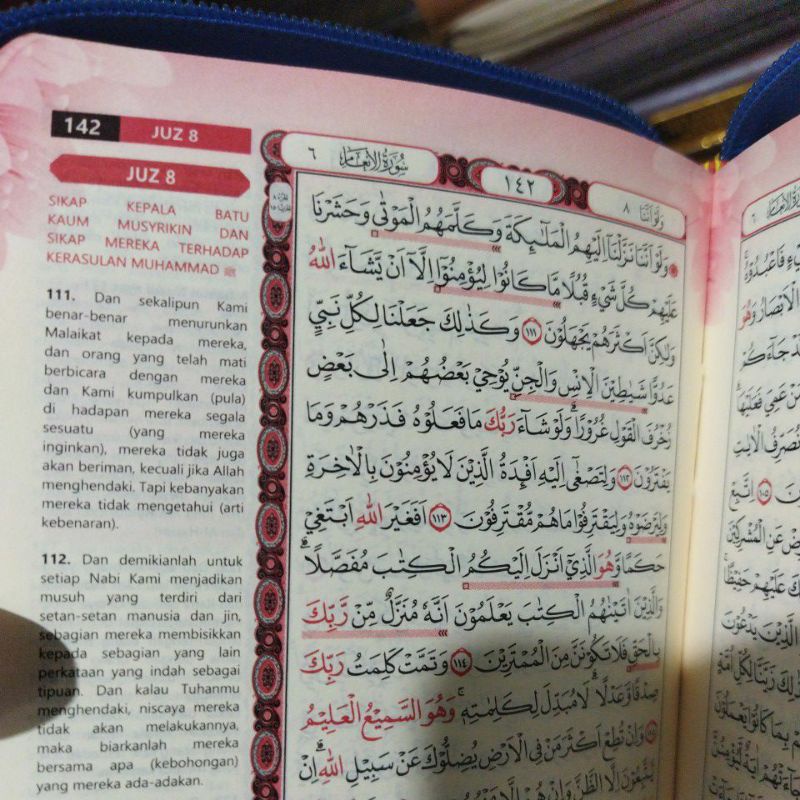 142 JUZ 8
JUZ 8
SIKAP KEPALA BATU
KAUM MUSYRIKIN DAN
SIKAP MEREKA TERHADAP
KERASULAN MUHAMMAD ﷺ
111. Dan sekalipun Kami
benar-benar menurunkan
Malaikat kepada mereka,
dan orang yang telah mati
berbicara dengan mereka
dan Kami kumpulkan (pula)
di hadapan mereka segala
sesuatu (yang mereka
inginkan), mereka tidak juga
akan beriman, kecuali jika Allah
menghendaki. Tapi kebanyakan
mereka tidak mengetahui (arti
kebenaran).
112. Dan demikianlah untuk
setiap Nabi Kami menjadikan
musuh yang terdiri dari
setan-setan manusia dan jin,
sebagian mereka membisikkan
kepada sebagian yang lain
perkataan yang indah sebagai
tipuan. Dan kalau Tuhanmu
menghendaki, niscaya mereka
tidak akan melakukannya,
maka biarkanlah mereka
bersama apa (kebohongan)
yang mereka ada-adakan.
٦ سُوْرَةُ الْاَنْعَامِ ١٤٢ وَلَوْ اَنَّنَا ٨
وَلَوْ اَنَّنَا نَزَّلْنَآ اِلَيْهِمُ الْمَلٰۤىِٕكَةَ وَكَلَّمَهُمُ الْمَوْتٰى وَحَشَرْنَا
عَلَيْهِمْ كُلَّ شَيْءٍ قُبُلًا مَّا كَانُوْا لِيُؤْمِنُوْٓا اِلَّآ اَنْ يَّشَاۤءَ اللّٰهُ
وَلٰكِنَّ اَكْثَرَهُمْ يَجْهَلُوْنَ ١١١ وَكَذٰلِكَ جَعَلْنَا لِكُلِّ نَبِيٍّ
عَدُوًّا شَيٰطِيْنَ الْاِنْسِ وَالْجِنِّ يُوْحِيْ بَعْضُهُمْ اِلٰى بَعْضٍ
زُخْرُفَ الْقَوْلِ غُرُوْرًا وَلَوْ شَاۤءَ رَبُّكَ مَا فَعَلُوْهُ فَذَرْهُمْ وَمَا
يَفْتَرُوْنَ ١١٢ وَلِتَصْغٰٓى اِلَيْهِ اَفْـِٕدَةُ الَّذِيْنَ لَا يُؤْمِنُوْنَ بِالْاٰخِرَةِ
وَلِيَرْضَوْهُ وَلِيَقْتَرِفُوْا مَا هُمْ مُّقْتَرِفُوْنَ ١١٣ اَفَغَيْرَ اللّٰهِ اَبْتَغِيْ
حَكَمًا وَّهُوَ الَّذِيْٓ اَنْزَلَ اِلَيْكُمُ الْكِتٰبَ مُفَصَّلًا ۗ
وَالَّذِيْنَ اٰتَيْنٰهُمُ الْكِتٰبَ يَعْلَمُوْنَ اَنَّهٗ مُنَزَّلٌ مِّنْ رَّبِّكَ
بِالْحَقِّ فَلَا تَكُوْنَنَّ مِنَ الْمُمْتَرِيْنَ ١١٤ وَتَمَّتْ كَلِمَتُ رَبِّكَ
صِدْقًا وَّعَدْلًا ۗ لَا مُبَدِّلَ لِكَلِمٰتِهٖ ۚ وَهُوَ السَّمِيْعُ الْعَلِيْمُ
١١٥ وَاِنْ تُطِعْ اَكْثَرَ مَنْ فِى الْاَرْضِ يُضِلُّوْكَ عَنْ سَبِيْلِ اللّٰهِ ۗ اِنْ
يَّتَّبِعُوْنَ اِلَّا الظَّنَّ وَاِنْ هُمْ